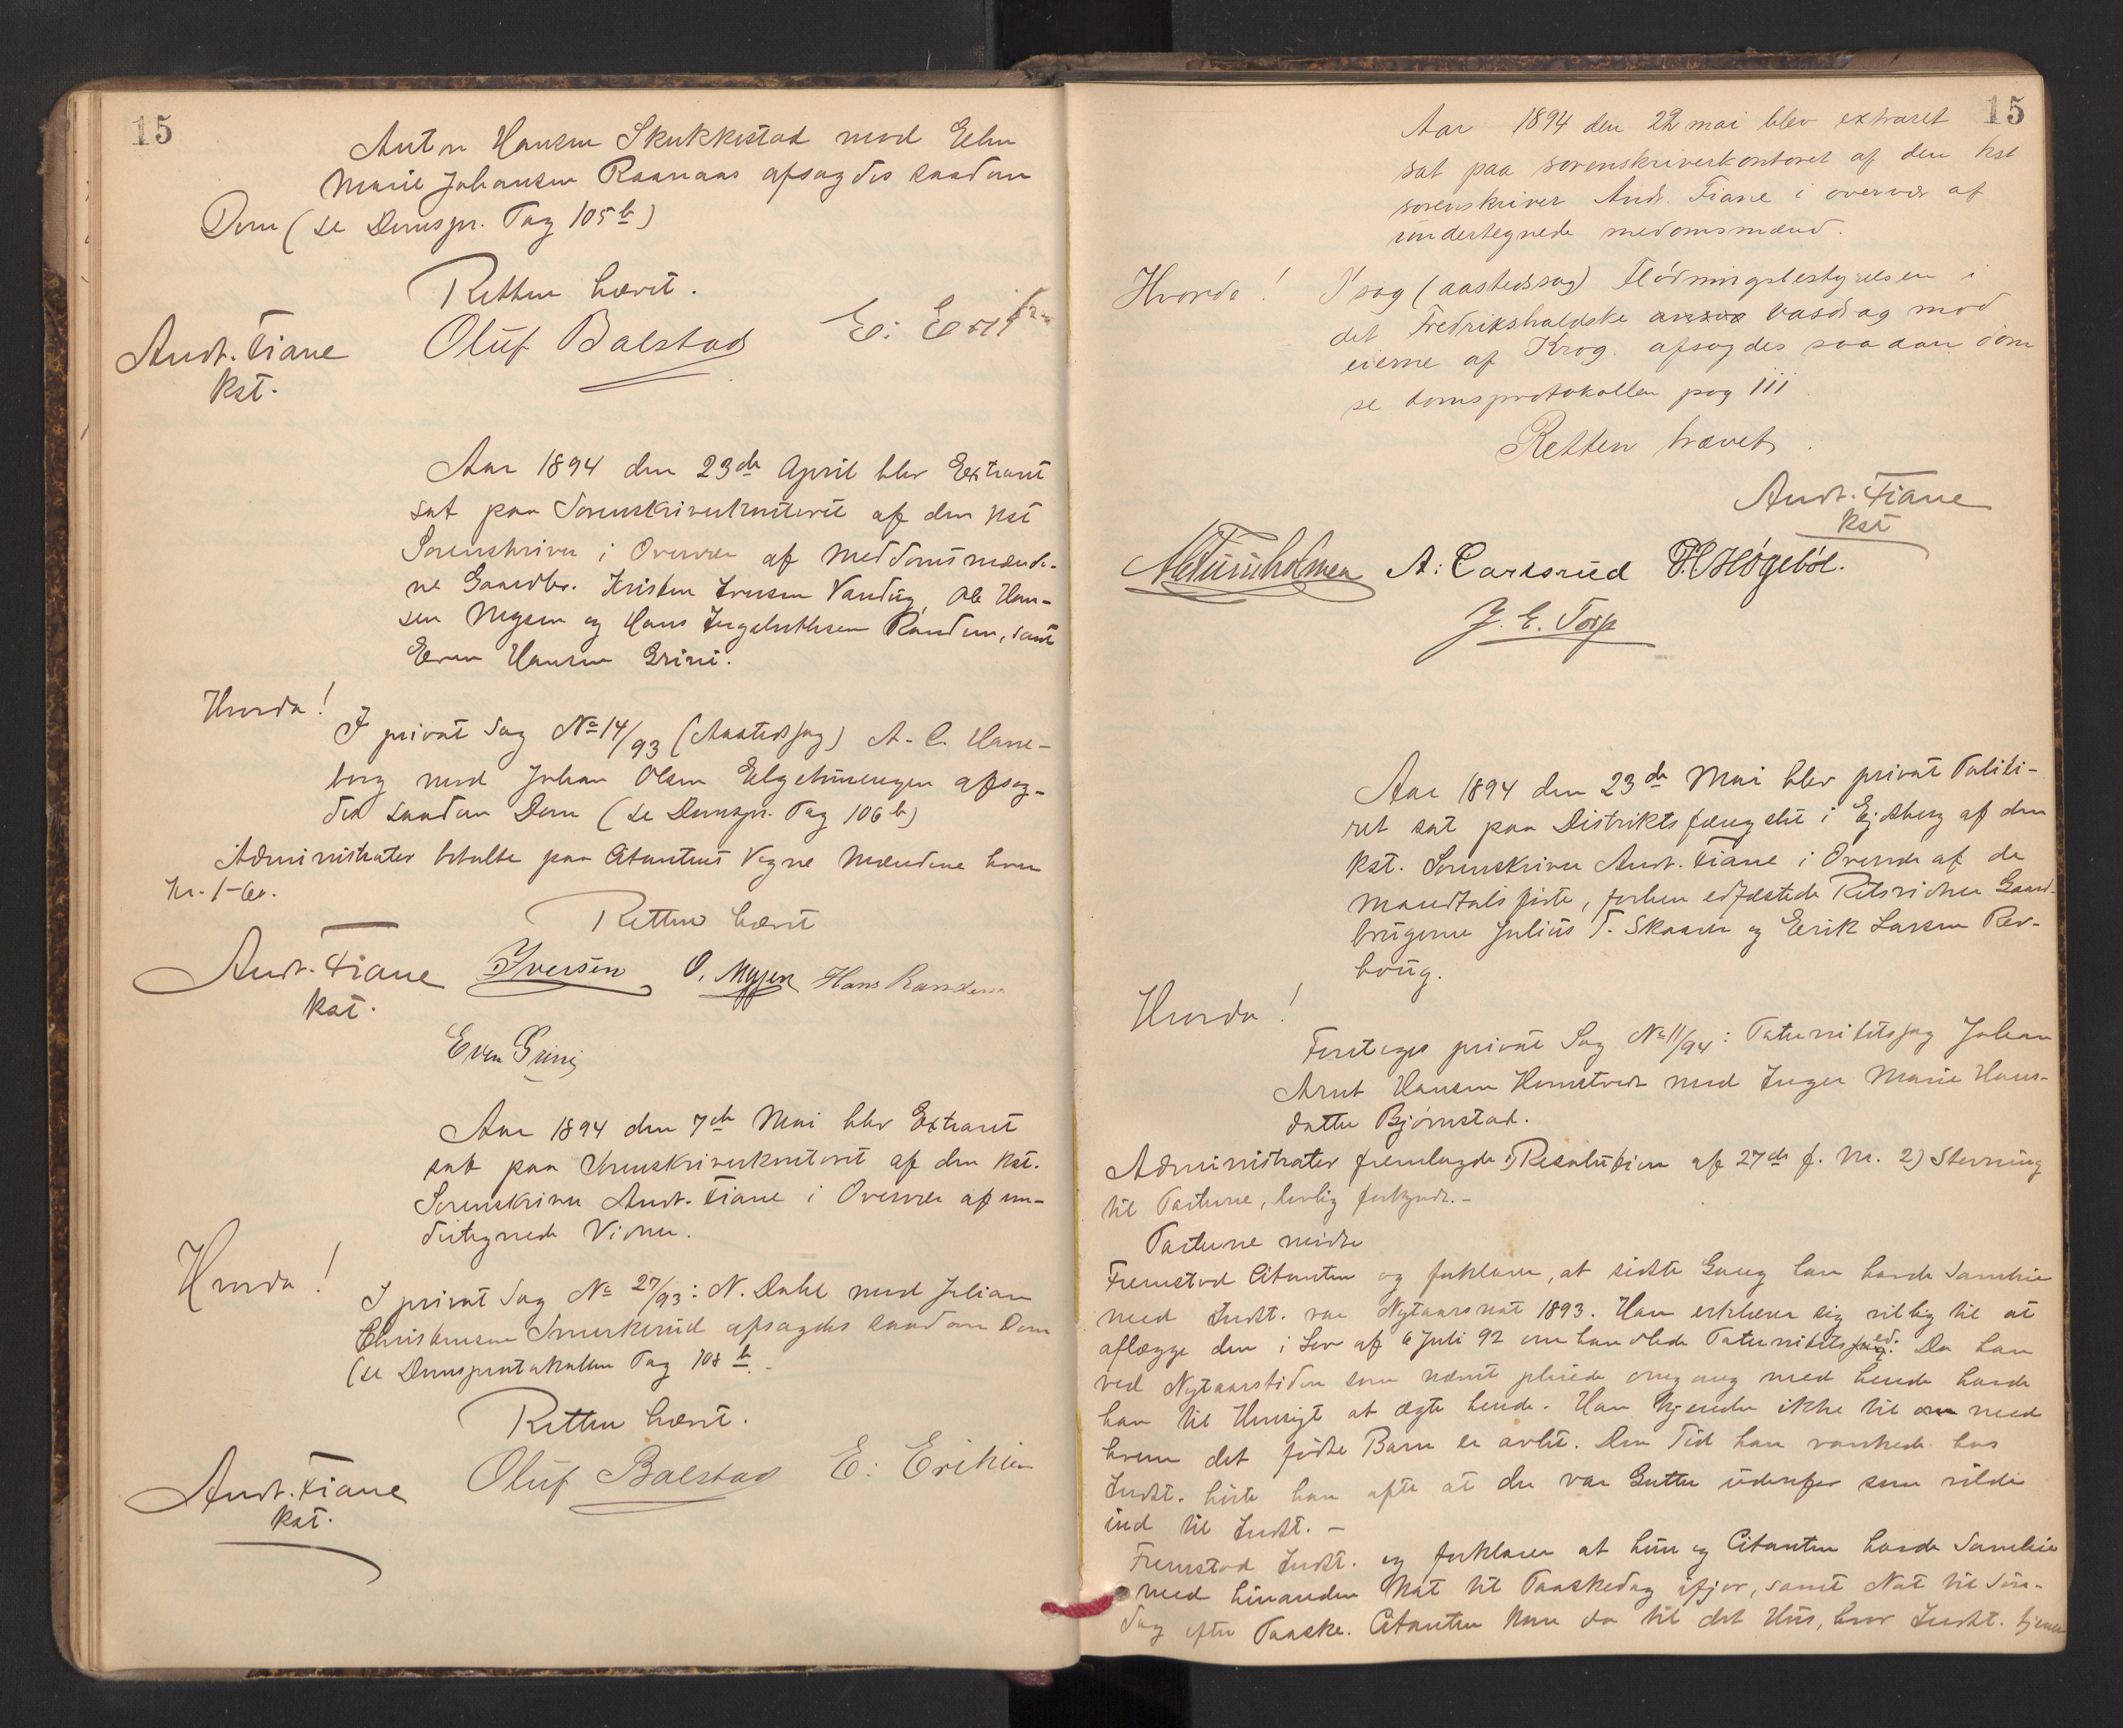 15
Anton Hansen Skukkestad mod Elen
Marie Johansen Raanaas afsagdes saadan
Dom (se Domspr. Pag 105b)
Retten hævet.
Andr. Fiane
kst.
Oluf Balstad
E: Erik
Aar 1894 den 23de April blev Extraret
sat paa Sorenskriverkontoret af den kst
Sorenskriver i Overvær af Meddomsmænde-
ne Gaardbr. Kristen Iversen Vandug, Ole Han-
sen Mysen og Hans Ingebrethsen Randem, samt
Even Hansen Grini.
Hvorda!
I privat Sag No 14/93 (Aastedssag) A. C. Hane-
borg mod Johan Olsen Elgetunengen afsag-
des saadan Dom (se Domspr. Pag 106b)
Administrator betalte paa Citantens Vegne Mændene hver
Kr. 1-60.
Retten hævet
Andr. Fiane
kst.
Iversen
O. Mysen
Hans Randem
Even Grini
Aar 1894 den 7de Mai blev Extraret
sat paa Sorenskriverkontoret af den kst.
Sorenskriver Andr. Fiane i Overvær af un-
dertegnede Vidner.
Hvorda!
I privat Sag No 27/93: N. Dahl mod Julian
Christensen Smerkerud afsagdes saadan Dom
(se Domsprotokollen Pag 108b
Retten hævet.
Andr. Fiane
kst.
Oluf Balstad
E: Eriksen
15
Aar 1894 den 22 mai blev extraret
sat paa sorenskriverkontoret af den kst
sorenskriver Andr. Fiane i overvær af
undertegnede medomsmænd.
Hvorda!
I sag (aastedssag) Flødningsbestyrelsen i
det Fredrikshaldske vasdrag mod
eierne af Krog. afsagdes saadan dom
se domsprotokollen pag 111
Retten hævet.
Andr. Fiane
kst
A. Carlsrud
H. Høgebøl.
J. E. Torp
Aar 1894 den 23de Mai blev privat Politi-
ret sat paa Distriktsfængslet i Ejdsberg af den
kst. Sorenskriver Andr. Fiane i Overvær af de
mandtalsførte, forhen edfæstede Retsvidner Gaard-
brugerne Julius T. Skaarer og Erik Larsen Rev-
houg.
Hvorda!
Foretages privat Sag No 11/94: Paternitetssag Johan
Arnt Hansen Homstvedt mod Inger Marie Hans-
datter Bjørnstad.
Administrator fremlagde 1) Resolution af 27de f. M. 2) Stevning
til Parterne, lovlig forkyndt.-
Parterne mødte
Fremstod Citanten og forklarer, at sidste Gang han havde Samleie
med Indst. var Nytaarsnat 1893. Han erklærer sig villig til at
aflægge den i Lov af 6 Juli 92 omhandlede Paternitetsed. Da han
ved Nytaarstiden som nævnt pleiede omgang med hende havde
han til Hensigt at ægte hende. Han kjender ikke til med
hvem det fødte Barn er avlet. Den Tid han vankede hos
Indst. hørte han ofte at der var Gutter udenfor som vilde
ind til Indst. -
Fremstod Indst. og forklarer at hun og Citanten havde Samleie
med hinanden Nat til Paaskedag ifjor, samt Nat til Søn-
dag efter Paaske. Citanten kom da til det Hus, hvor Indst. tjener